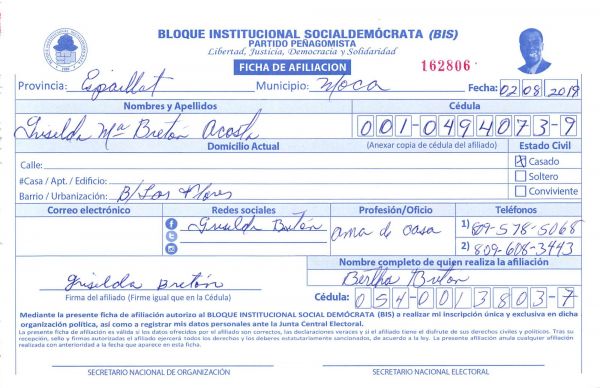 BLOQUE INSTITUCIONAL SOCIALDEMÓCRATA (BIS)
PARTIDO PEÑAGOMISTA
Libertad, Justicia, Democracia y Solidaridad
FICHA DE AFILIACION 162806
Provincia: Espaillat Municipio: Moca Fecha: 02 08 2019
Nombres y Apellidos Cédula
Griselda Mª Bretón Acosta 001-0494073-9
Domicilio Actual (Anexar copia de cédula del afiliado) Estado Civil
Calle: X Casado
#Casa / Apt. / Edificio: Soltero
Barrio / Urbanización: B/ Las Flores Conviviente
Correo electrónico Redes sociales Profesión/Oficio Teléfonos
Griselda Bretón ama d casa 1) 809-578-5068
2) 809-608-3443
Nombre completo de quien realiza la afiliación
Griselda Bretón Bertha Breton
Firma del afiliado (Firme igual que en la Cédula) Cédula: 054-0013803-7
Mediante la presente ficha de afiliación autorizo al BLOQUE INSTITUCIONAL SOCIALDEMÓCRATA (BIS) a realizar mi inscripción única y exclusiva en dicha
organización política, así como a registrar mis datos personales ante la Junta Central Electoral.
La presente ficha de afiliación es válida si los datos ofrecidos por el afiliado son correctos, las declaraciones veraces y si el afiliado tiene el disfrute de sus derechos civiles y políticos. Tras su
recepción, sello y firmas autorizadas el afiliado ejercerá todos los derechos y los deberes estatutariamente sancionados, de acuerdo a la ley. La presente afiliación anula cualquier afiliación
realizada con anterioridad a la fecha que aparece en esta ficha.
SECRETARIO NACIONAL DE ORGANIZACIÓN SECRETARIO NACIONAL ELECTORAL